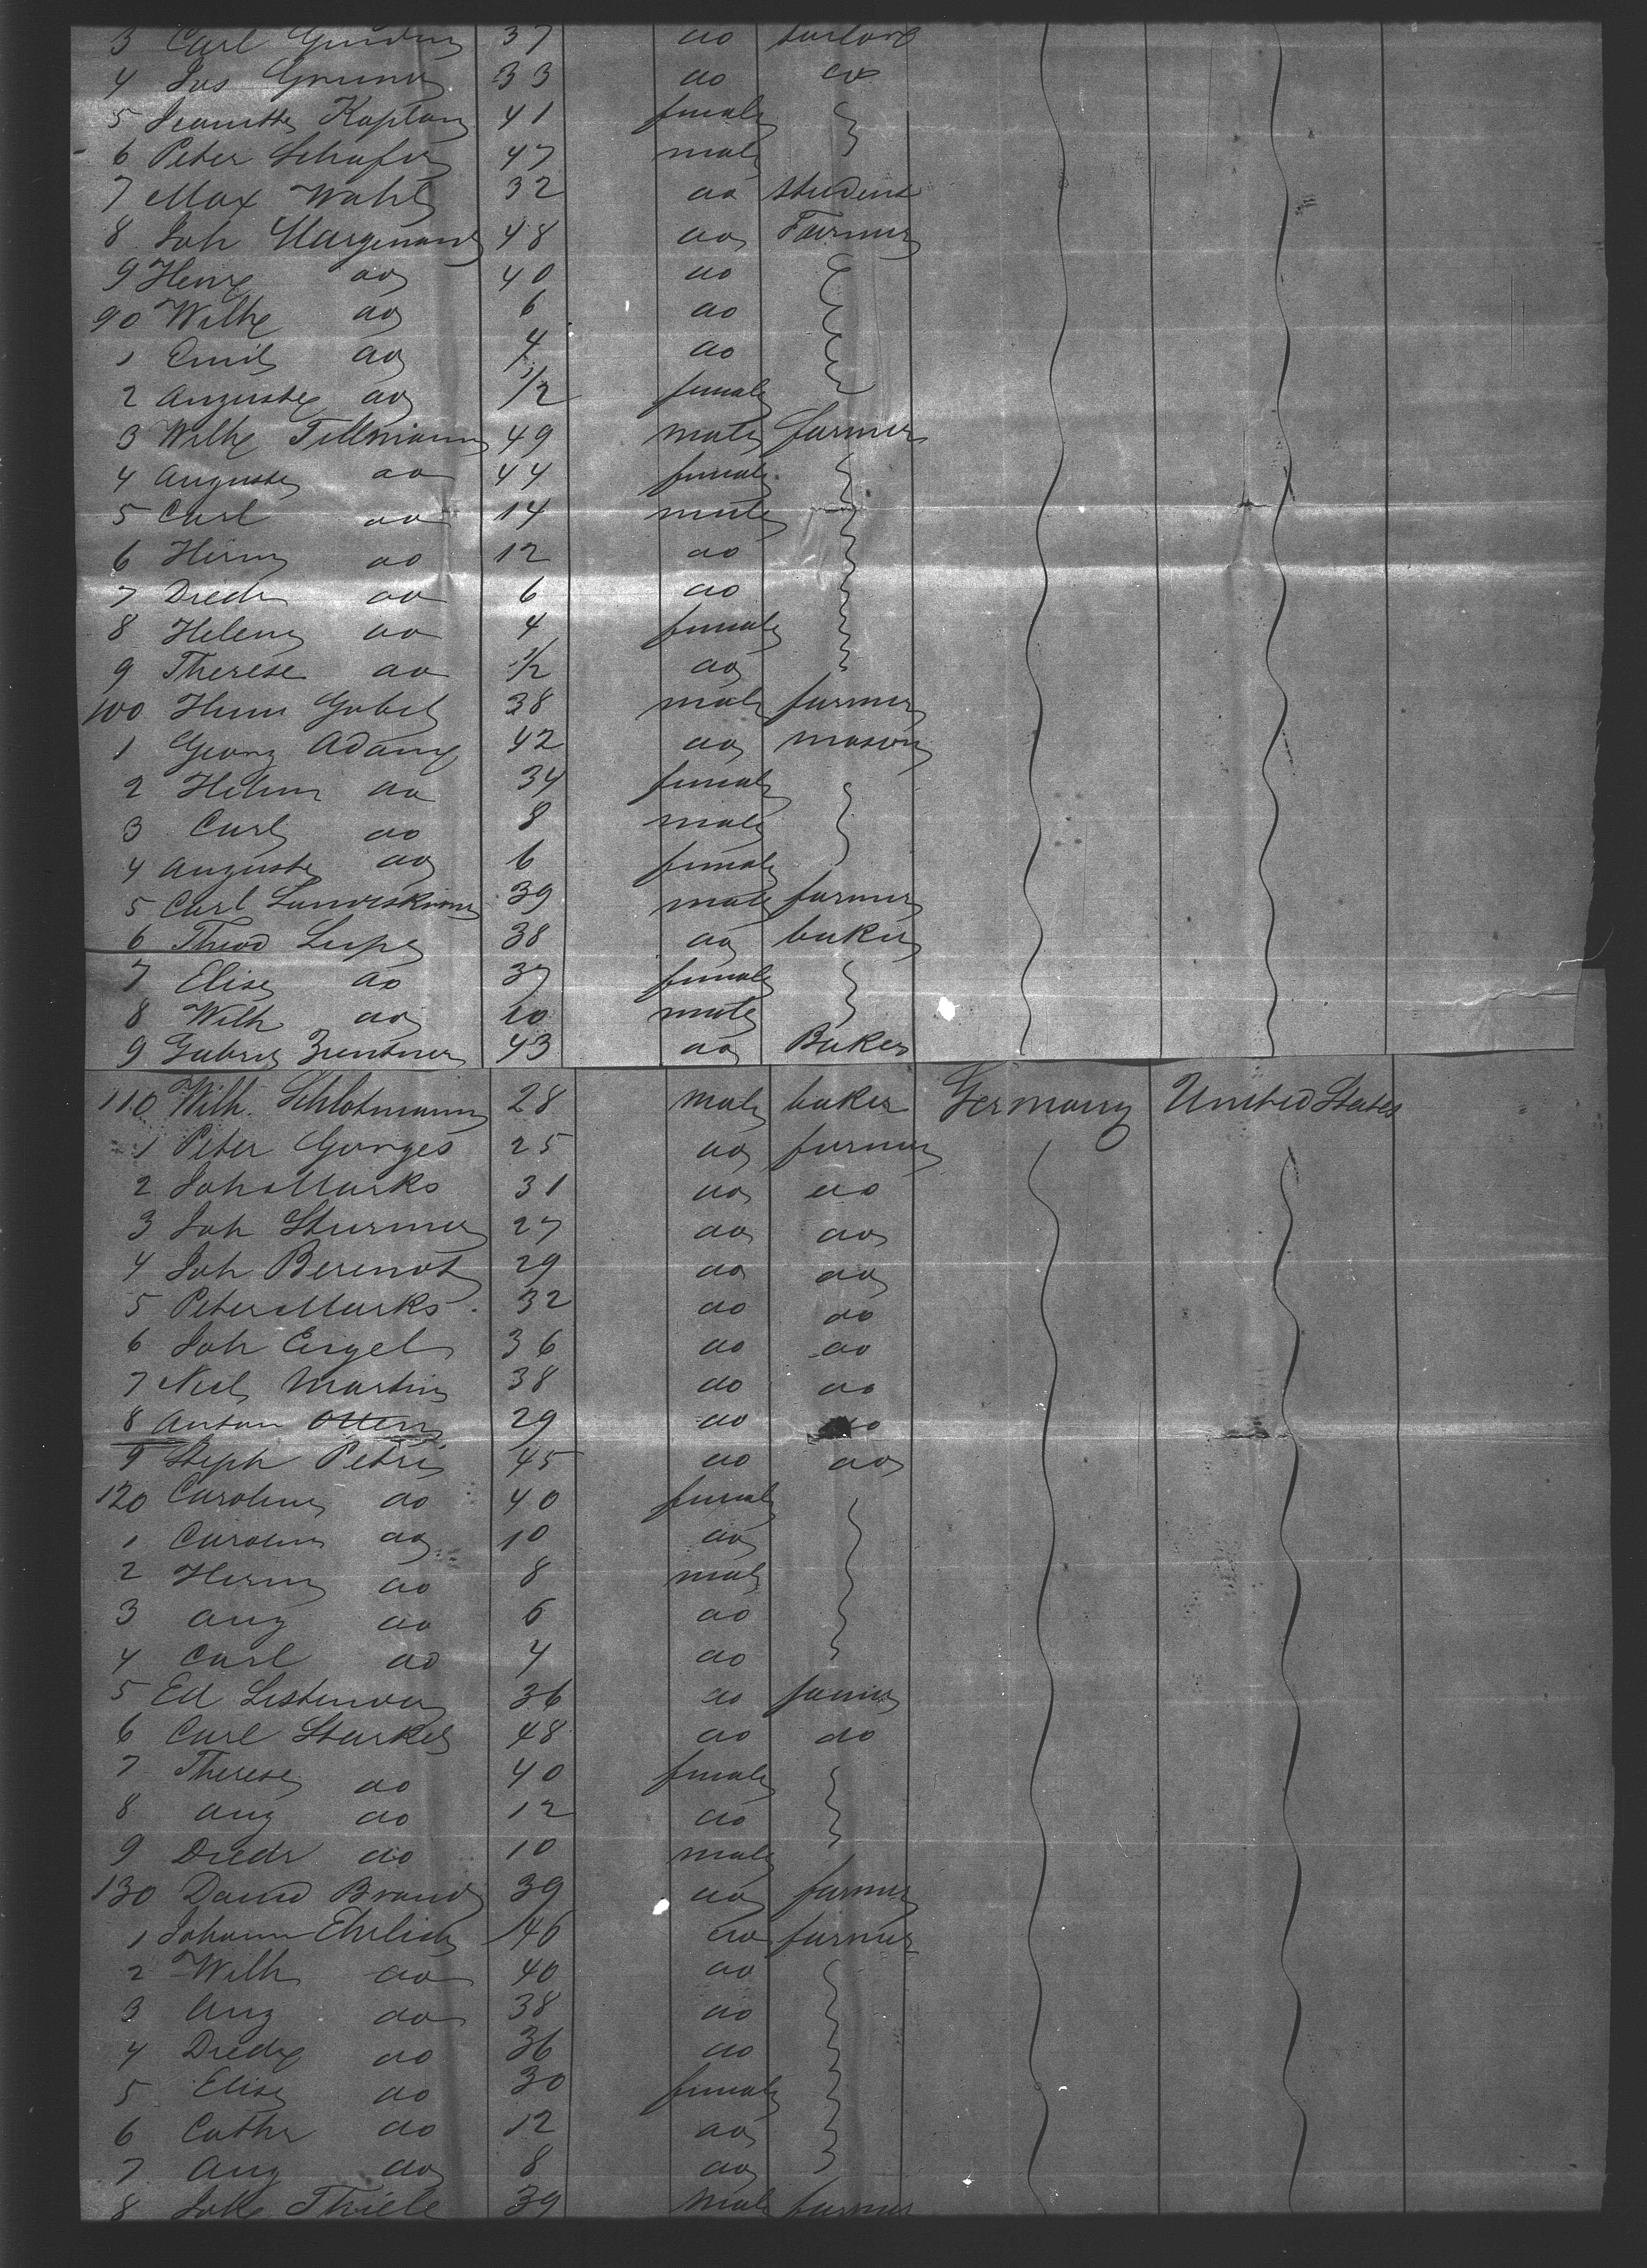 3 Carl 37 do
4 Jos 33 do do
5 Kaplan 41 female
6 Peter Schafer 47 male
7 Max Wahl 32 do student
8 Joh 48 do Farmer
9 do 40 do
90 Wilh do 6 do
1 Emil do 4 do
2 Auguste do 1/2 female
3 Wilh Tillmann 49 male farmer
4 Auguste do 44 female
5 Carl do 14 male
6 Herm do 12 do
7 Diedr do 6 do
8 Helene do 4 female
9 Therese do 1/2 do
100 Gobel 38 male farmer
1 Georg Adam 42 do mason
2 do 34 female
3 Carl do 8 male
4 Auguste do 6 female
5 Carl 39 male farmer
6 Theod 38 do baker
7 Elise do 37 female
8 Wilh do 10 male
9 Gabriel 43 do Baker
110 Wilh. Schlotmann 28 male baker Germany United States
1 Peter Gorges 25 do farmer
2 Joh Marks 31 do do
3 Joh Sturmer 27 do do
4 Joh Berendt 29 do do
5 Peter Marks 32 do do
6 Joh Engel 36 do do
7 Martin 38 do do
8 Anton Otten 29 do do
9 Steph Petri 45 do do
120 Caroline do 40 female
1 Caroline do 10 do
2 Herm do 8 male
3 Aug do 6 do
4 Carl do 4 do
5 Ed 36 do farmer
6 Carl Starkel 48 do do
7 Therese do 40 female
8 Aug do 12 do
9 Diedr do 10 male
130 David Brand 39 do farmer
1 Johann Ehrlich 46 do farmer
2 Wilh do 40 do
3 Aug do 38 do
4 Diedr do 36 do
5 Elise do 30 female
6 Cathr do 12 do
7 Aug do 8 do
8 Thiele 39 male farmer